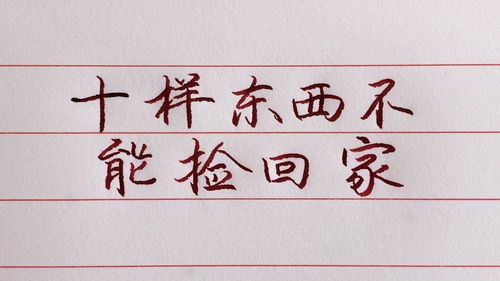 十样东西不
能捡回家